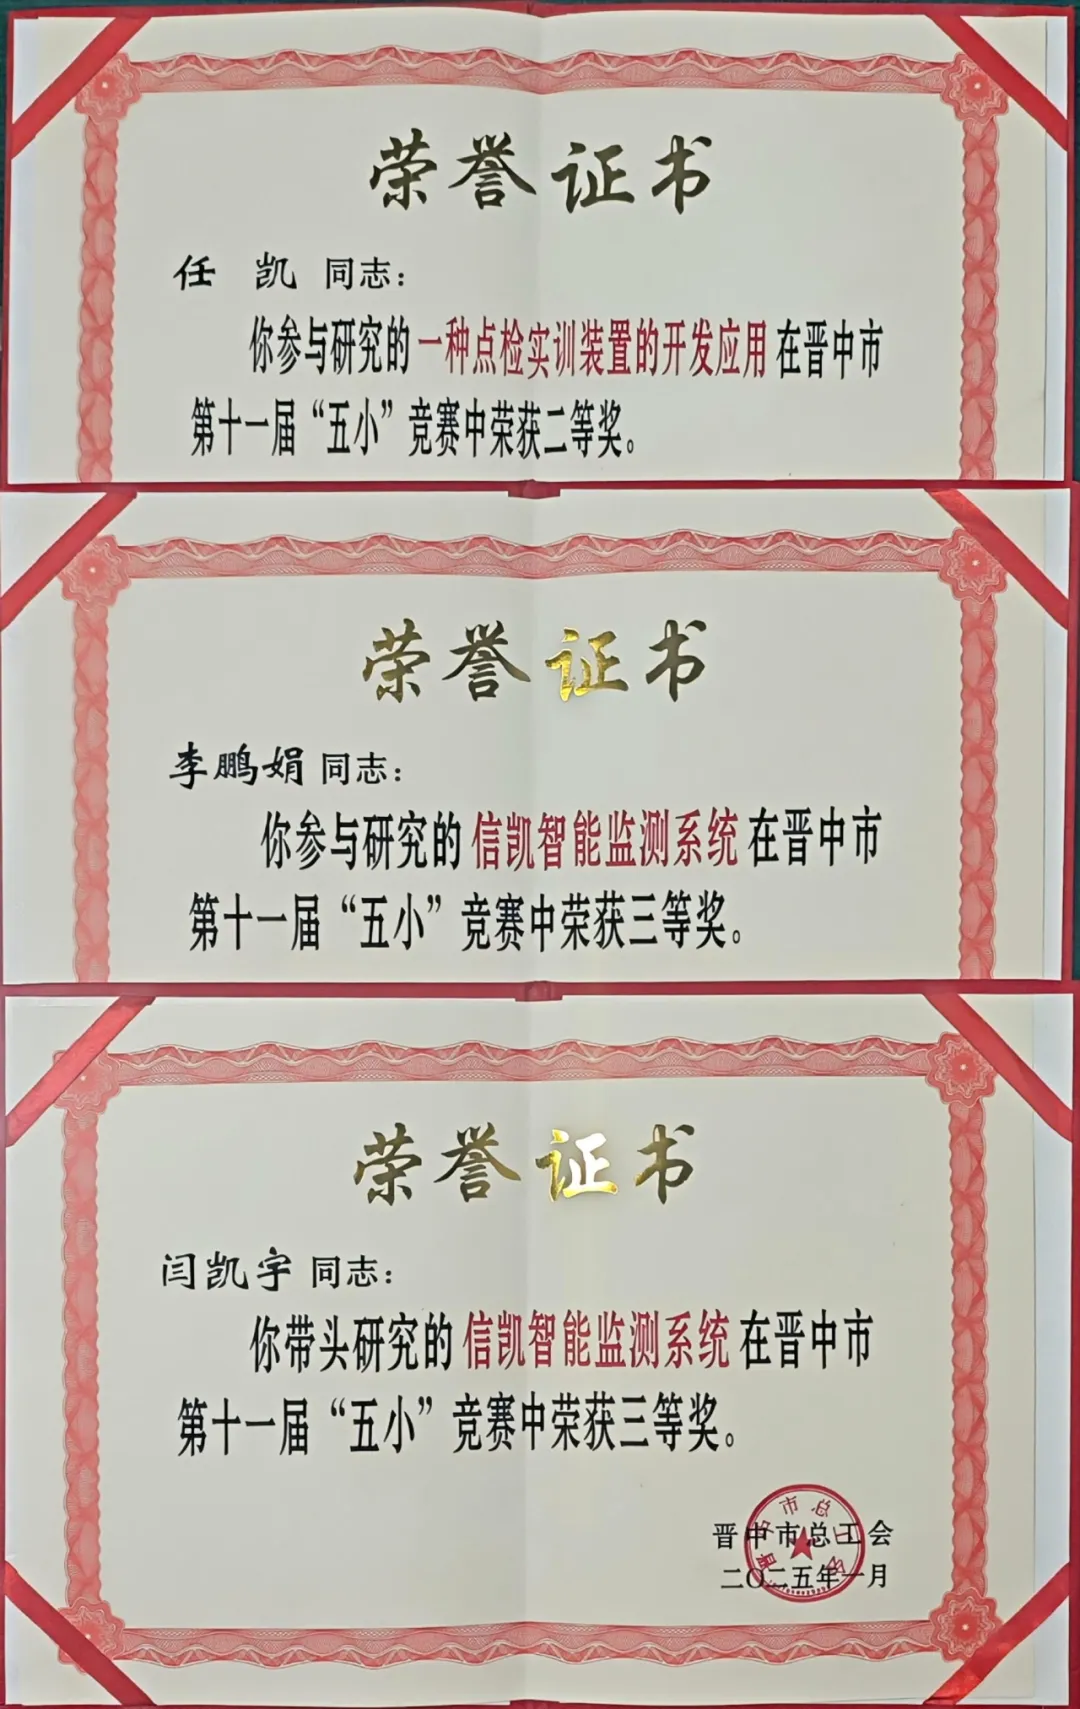 荣誉证书
任 凯 同志：
你参与研究的一种点检实训装置的开发应用在晋中市
第十一届“五小”竞赛中荣获二等奖。
荣誉证书
李鹏娟 同志：
你参与研究的信凯智能监测系统在晋中市
第十一届“五小”竞赛中荣获三等奖。
荣誉证书
闫凯宇 同志：
你带头研究的信凯智能监测系统在晋中市
第十一届“五小”竞赛中荣获三等奖。
晋中市总工会
二〇二五年一月